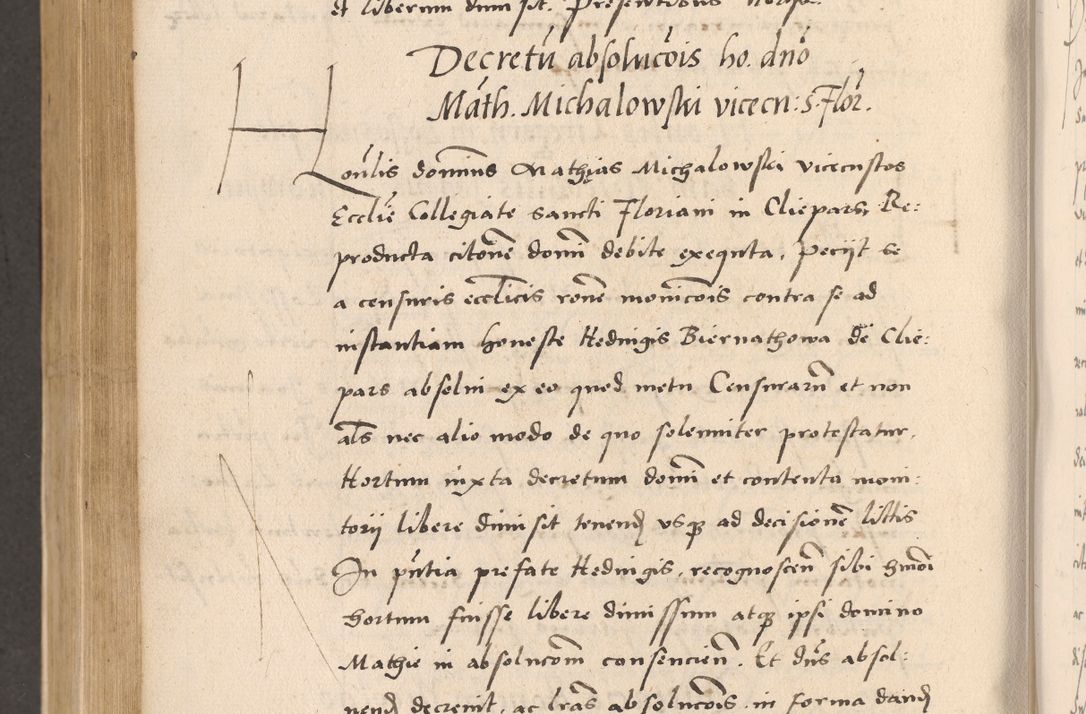 et liberum dimisit. Presentibus
Decretũ absolucõis ho. dnõ
Máth. Michalowski vicecũ: S. Flor̃.
Honɫis dominus Mathias Michalowski vicecustos
Ecclie Collegiate sancti Floriani in Clepars, Re:
producta citõne domĩ debite exequta, Peciit se
a censuris ecclicis rõne monicõis contra se ad
instantiam honeste Hedvigis Biernathowa de Clie:
pars absolui ex eo qued metu Censurarũ et non
al̃s nec alio modo de quo solenniter protestatur,
Hortum iuxta decretum domĩ et contenta moni:
torii libere dimisit tenend̃ vsq̃ ad decisionẽ littis
In pñtia prefate Hedvigis, recognoscen̄ sibi hmõi
hortum fuisse libere dimissum atq̃ ipsi domino
Mathie in absolucõm consencien̄. Et dñs absol:
uend̃ decreuit, ac l̃ras absolucõis in forma dand̃